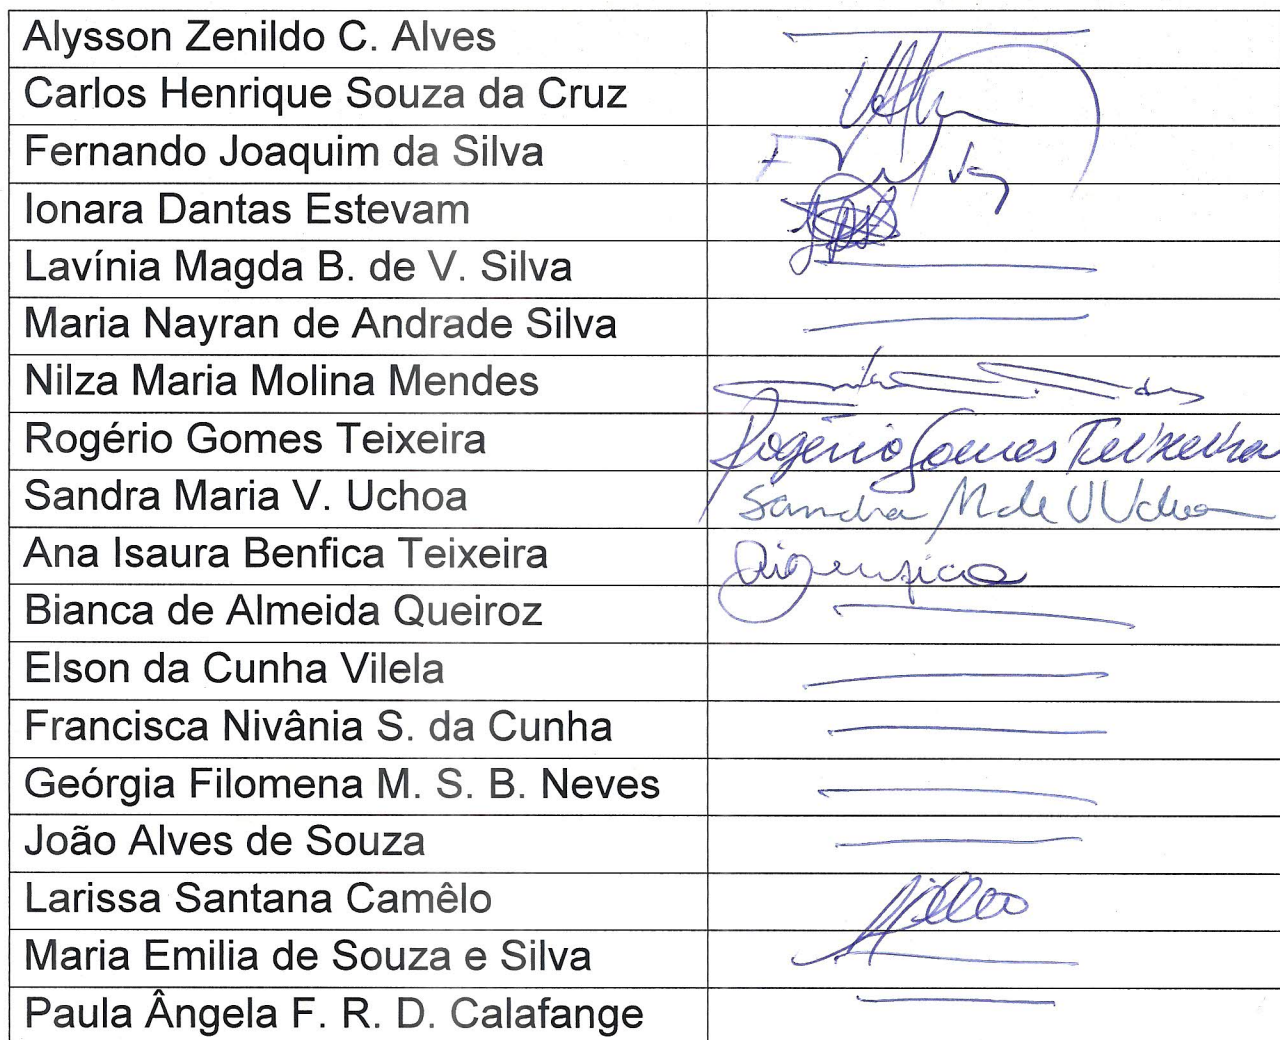 Alysson Zenildo C. Alves
Carlos Henrique Souza da Cruz
Fernando Joaquim da Silva
Ionara Dantas Estevam
Lavínia Magda B. de V. Silva
Maria Nayran de Andrade Silva
Nilza Maria Molina Mendes
Rogério Gomes Teixeira Rogério Gomes Teixeira
Sandra Maria V. Uchoa Sandra M de V Uchoa
Ana Isaura Benfica Teixeira
Bianca de Almeida Queiroz
Elson da Cunha Vilela
Francisca Nivânia S. da Cunha
Geórgia Filomena M. S. B. Neves
João Alves de Souza
Larissa Santana Camêlo
Maria Emilia de Souza e Silva
Paula Ângela F. R. D. Calafange